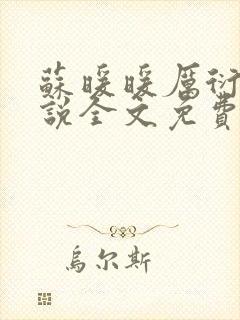 蘇暖暖厲衍
說全文免費
烏尔斯